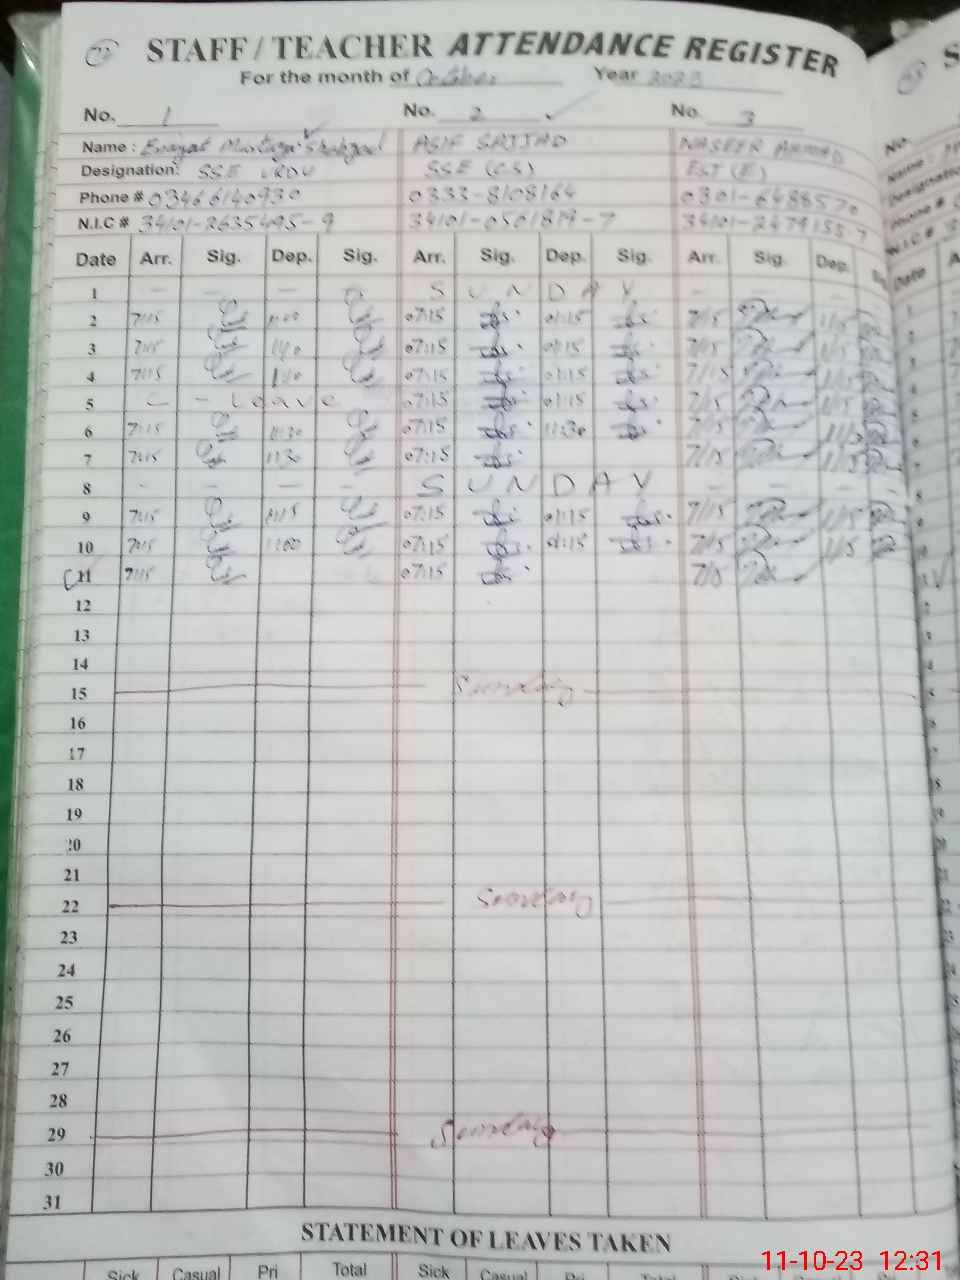 STAFF / TEACHER ATTENDANCE REGISTER
For the month of October Year 2023
No. 1 No. 2 No. 3
Name : Enayat Murtaza Shahzad ASIF SAJJAD NASEER AHMAD
Designation: SSE URDU SSE (CS) EST (E)
Phone # 03466140930 0333-8108164 0301-6488570
N.I.C # 34101-2635495-9 34101-0501819-7 34101-2479155-7
Date Arr. Sig. Dep. Sig. Arr. Sig. Dep. Sig. Arr. Sig. Dep.
1 - - - SUNDAY - - -
2 7:15 07:15 01:15 7/15 1/15
3 7:15 07:15 01:15 7/15 1/15
4 7:15 07:15 01:15 7/15 1/15
5 C - Leave 07:15 01:15 7/15 1/15
6 7:15 11:30 07:15 11:30 7/15
7 7:15 1:30 07:15 7/15
8 - - - - SUNDAY - - -
9 7:15 07:15 01:15 7/15 1/15
10 7:15 07:15 01:15 7/15 1/15
11 7:15 07:15 7/15
12
13
14
15 Sunday
16
17
18
19
20
21
22 Sunday
23
24
25
26
27
28
29 Sunday
30
31
STATEMENT OF LEAVES TAKEN
Sick Casual Pri Total Sick Casual
11-10-23 12:31